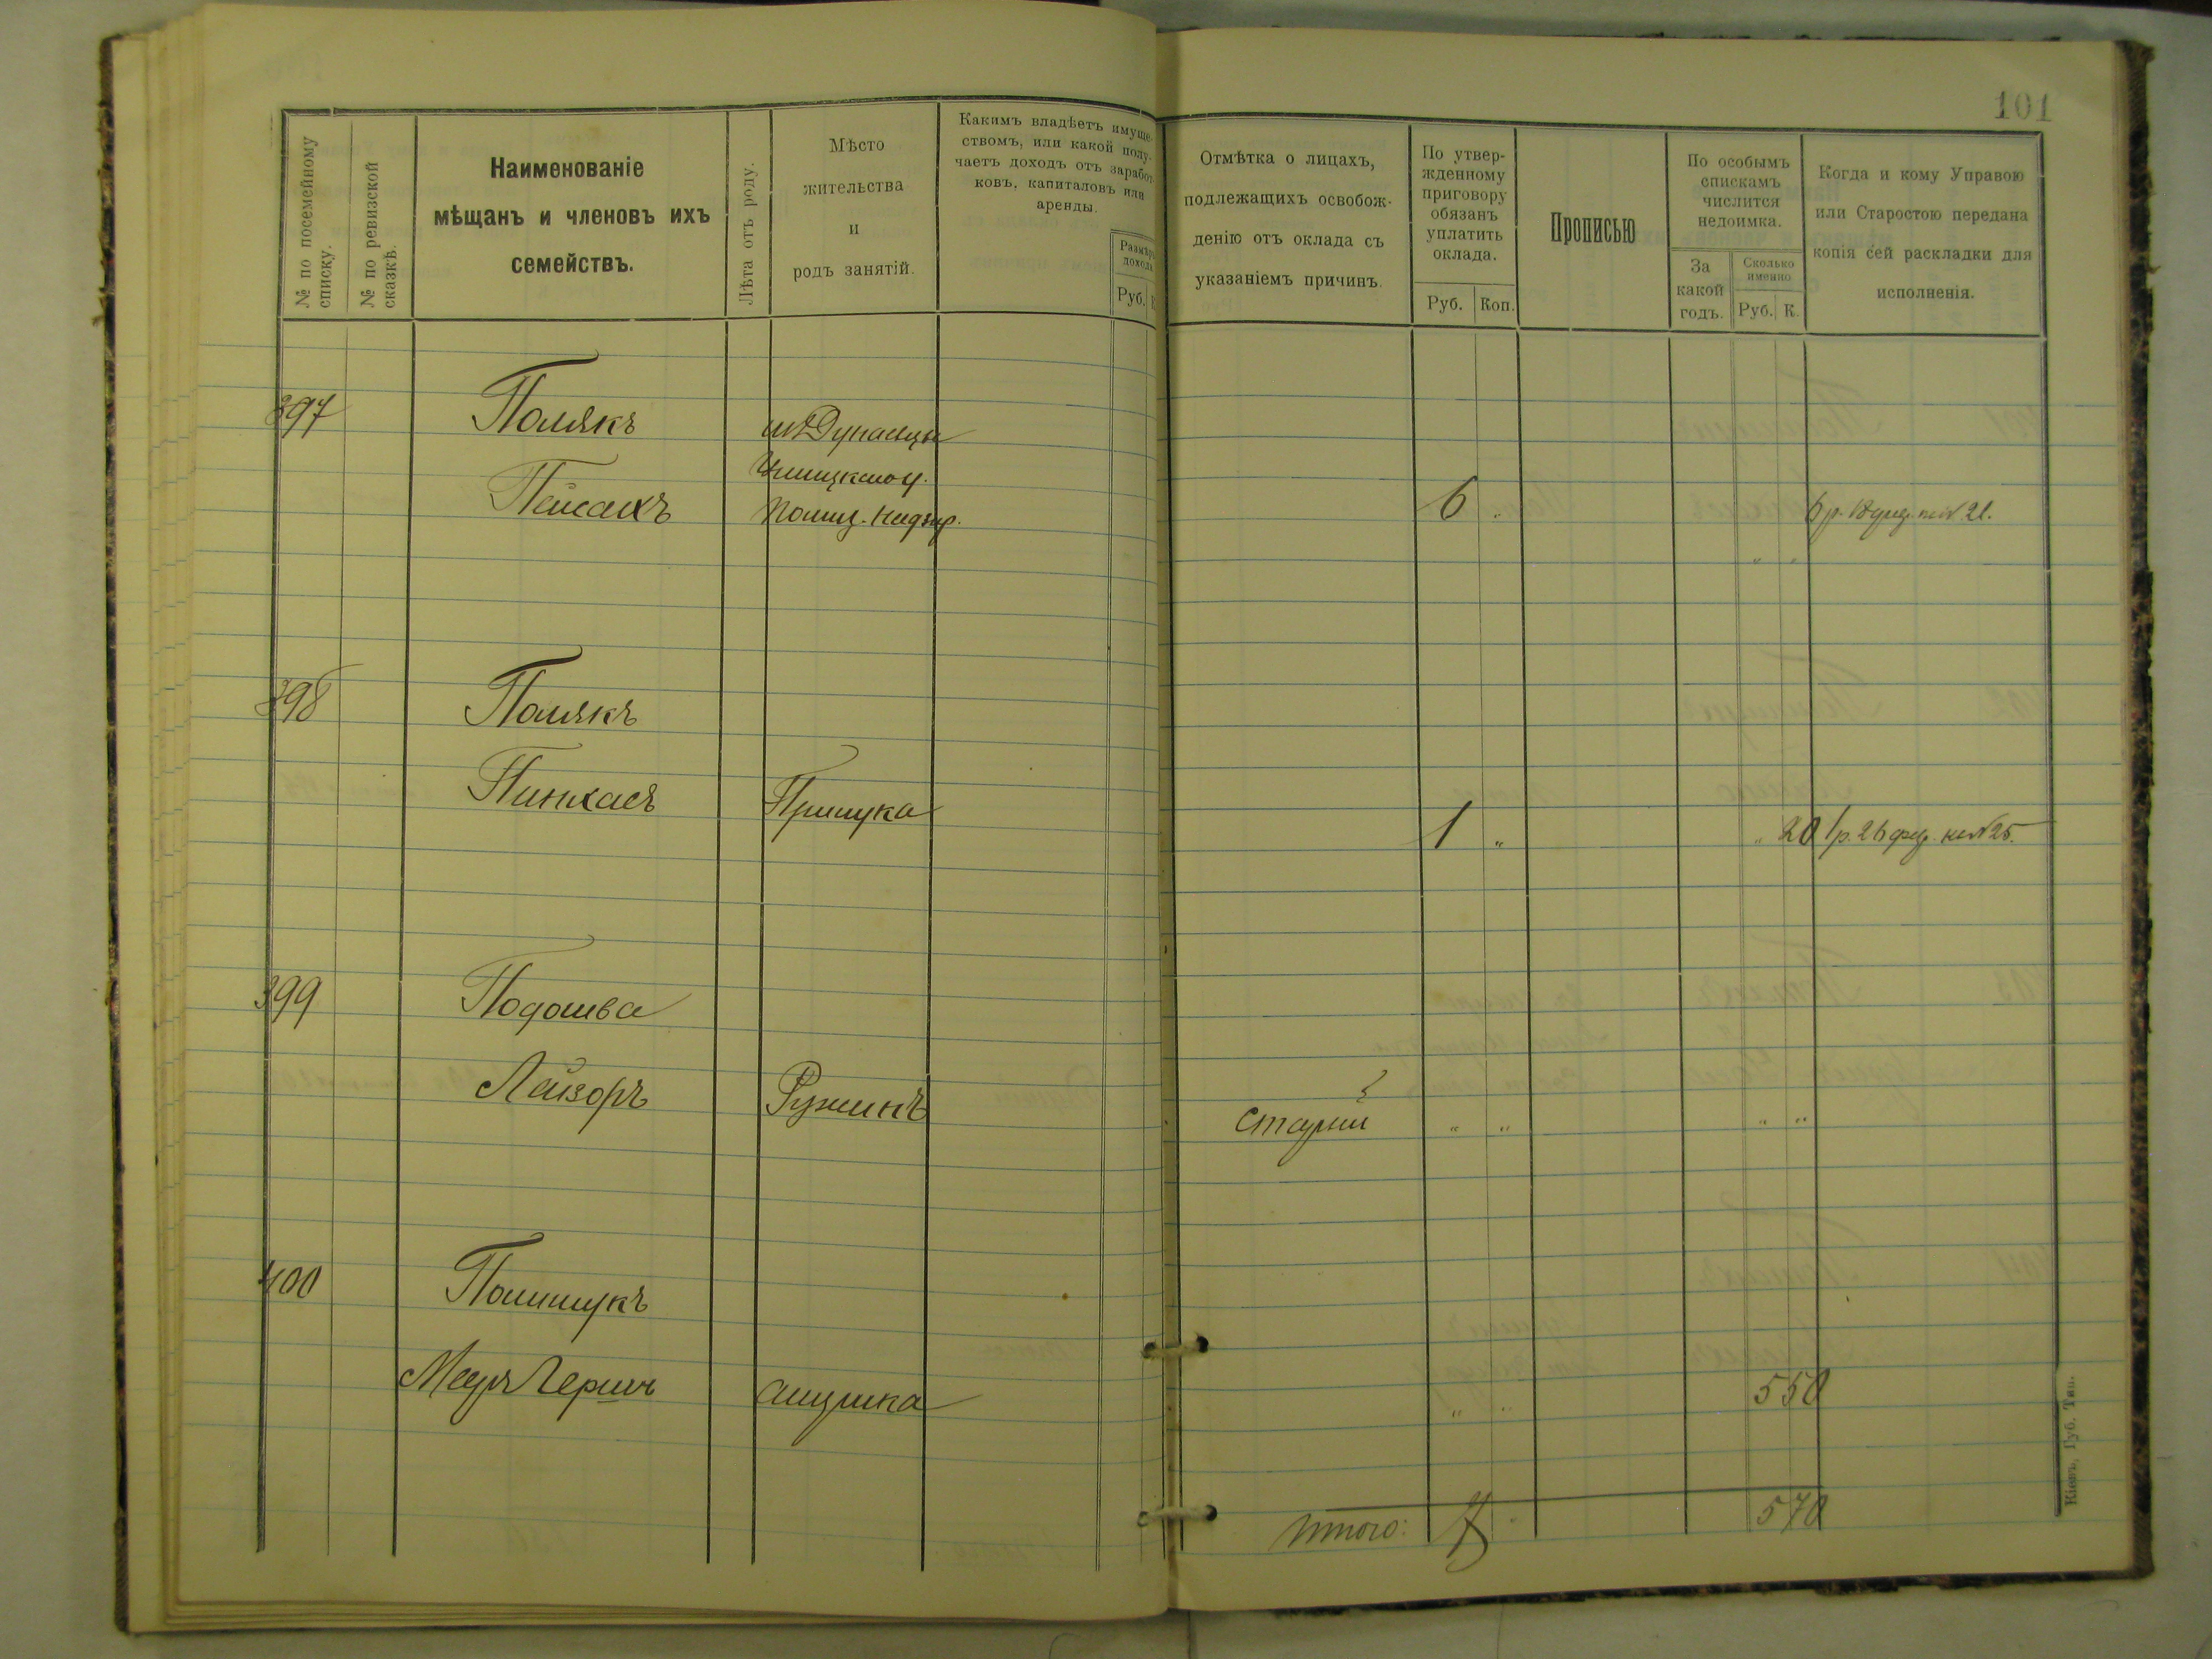 101
№ по посемейному списку.
№ по ревизской сказкѣ.
Наименованіе
мѣщанъ и членовъ ихъ
семействъ.
Лѣта отъ роду.
Мѣсто
жительства
и
родъ занятій.
Какимъ владѣетъ имуще-
ствомъ, или какой полу-
чаетъ доходъ отъ заработ-
ковъ, капиталовъ или
аренды.
Размѣръ
дохода
Руб.
К
Отмѣтка о лицахъ,
подлежащихъ освобож-
денію отъ оклада съ
указаніемъ причинъ.
По утвер-
жденному
приговору
обязанъ
уплатить
оклада.
Руб. Коп.
Прописью
По особымъ
спискамъ
числится
недоимка.
За
какой
годъ.
Сколько
именно
Руб. К.
Когда и кому Управою
или Старостою передана
копія сей раскладки для
исполненія.
397 Полякъ
м. Дунаевцы
Ушицкаго у.
Пейсахъ
6 "
6 р.
" "
398 Полякъ
Пинхасъ Прилука 1 " " 20 1 р. 26
399 Подошва
Лейзоръ Ружинъ старый " " " "
400 Полищукъ
Меер Герш " " 5 50
Итого: 7 " 5 70
Кіевъ, Губ. Тип.